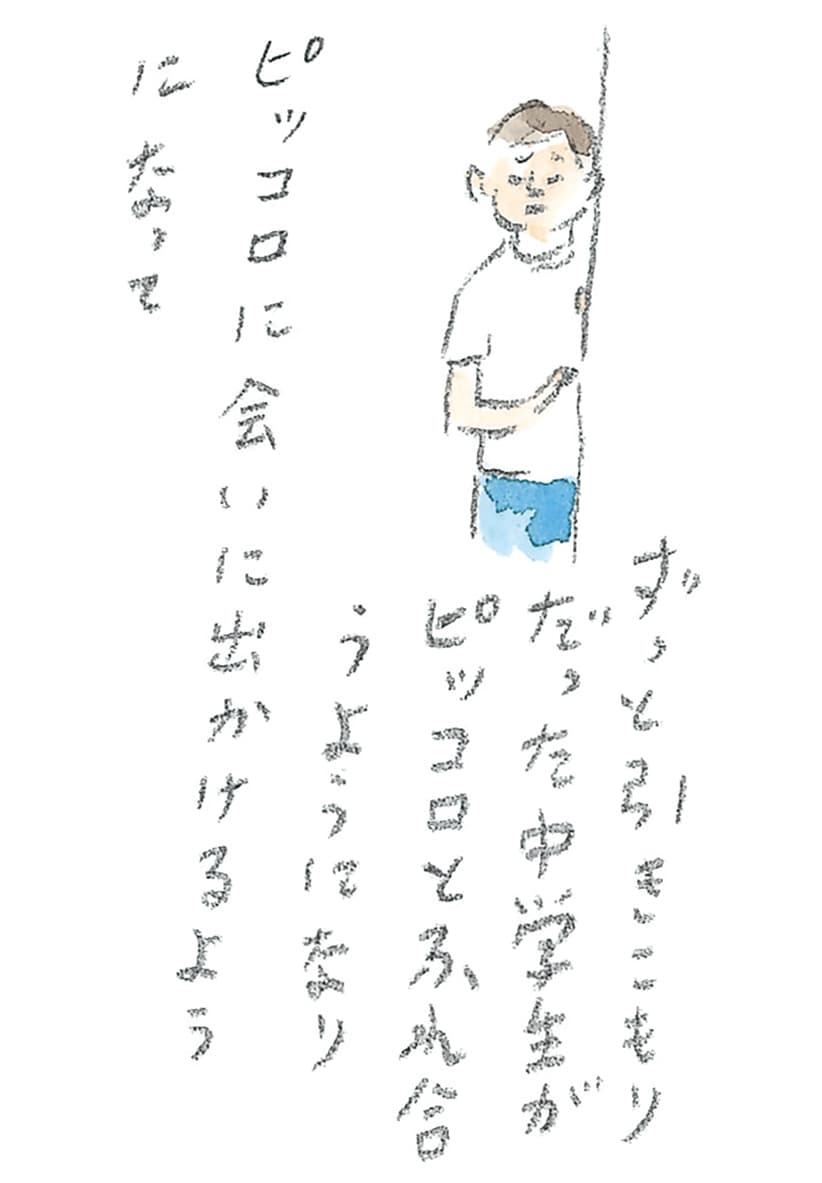 ずっと引きこもり
だった中学生が
ピッコロとふれ合
うようになり
ピッコロに会いに出かけるよう
になって